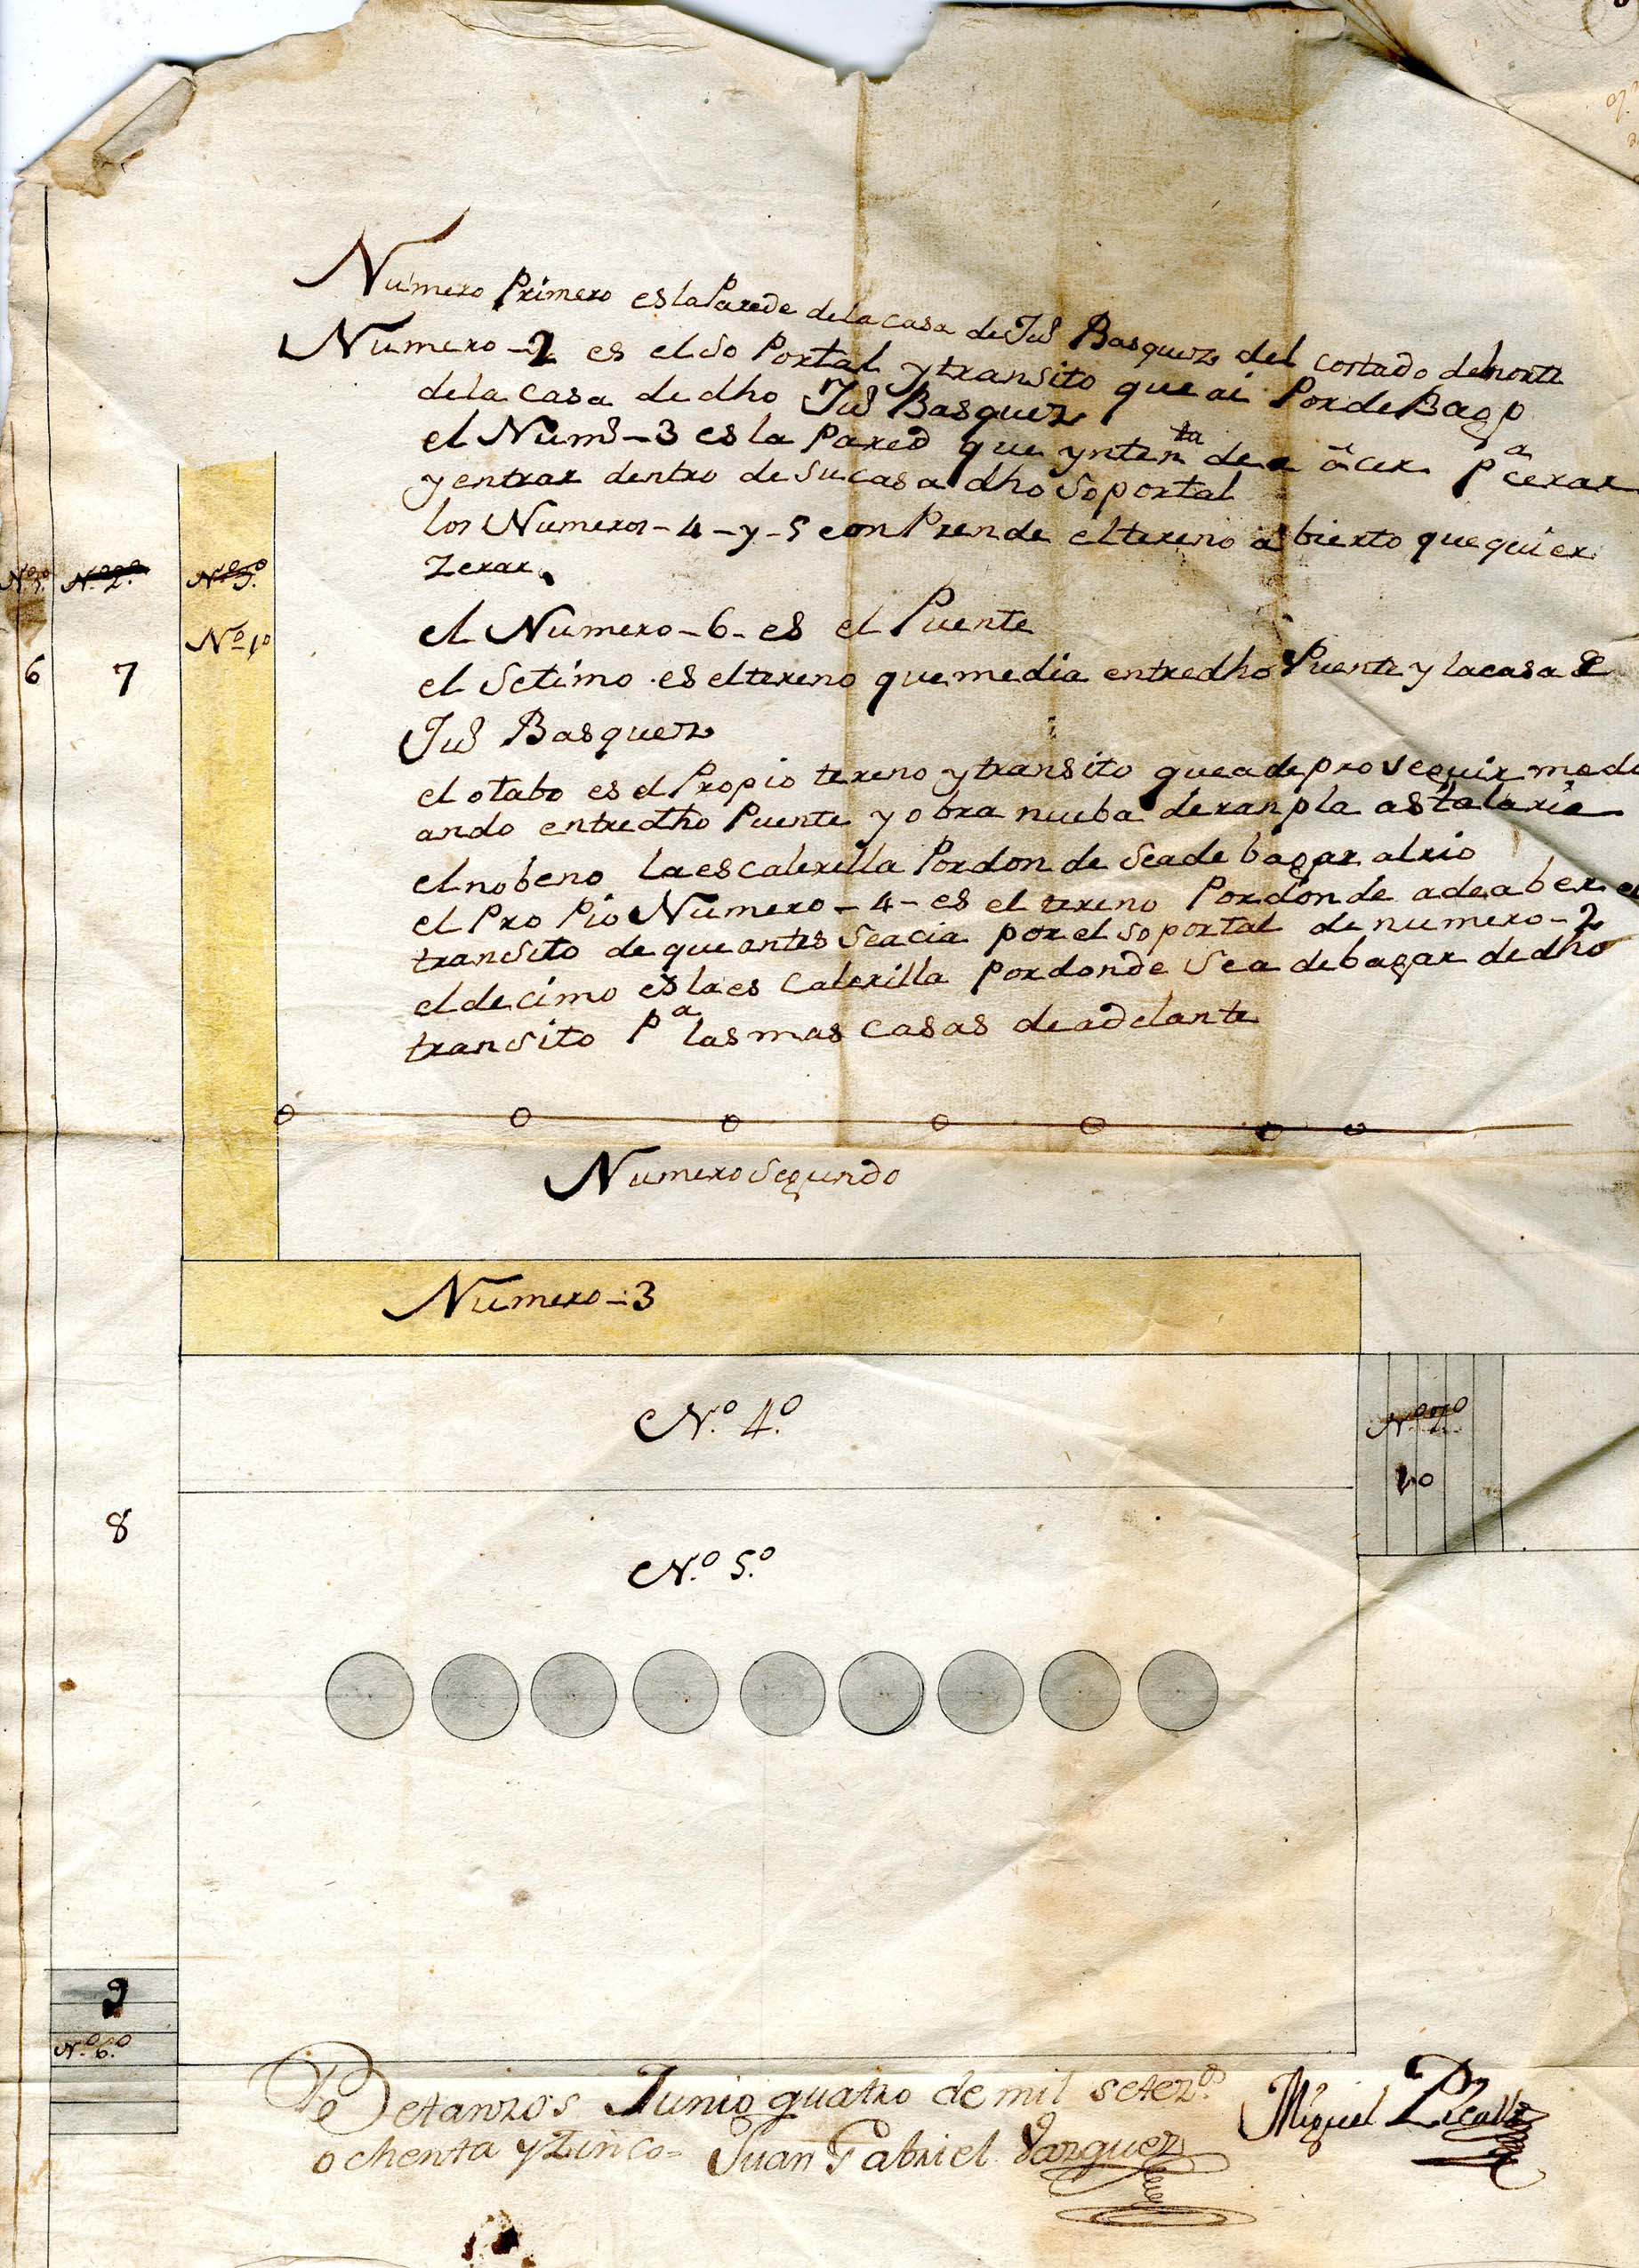 Numero Primero es la Parede de la casa de Jul Basquez del costado del norte
Numero - 2 es el so Portal y transito que ai Por de Bago
de la Casa de dho Jul Basquez
el Num - 3 es la Pared que ynten ta de a acer pa cerar
y entrar dentro de su casa dho soportal
los Numeros - 4 - y - 5 conPrende el tereno abierto que quier
zerar
el Numero - 6 - es el Puente
el Setimo es el tereno que media entre dho Puente y la casa de
Jul Basquez
el otabo es el Propio tereno y transito que a de proseguir medi
ando entre dho Puente y obra nueba de ranpla asta la ria
el nobeno la escalerilla Por don de se a de bagar al rio
el ProPio Numero - 4 - es el tereno Por donde a de aber el
transito de que antes se acia por el soportal de numero - 2
el decimo es la es Calerilla por donde se a de bagar de dho
transito pa las mas casas de adelante
Nº 2º
Nº 3º
Nº 1º
6
7
Numero Segundo
Numero - 3
N.º 4.º
Nº 7º
10
8
N.º 5.º
9
N.º 6.º
Betanzos Junio quatro de mil setez.os
ochenta y zinco = Juan Gabriel Vazquez
Miguel